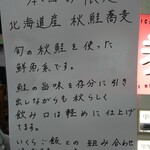 北海道産 秋鮭蕎麦
旬の秋鮭を使った
鮮魚系です。
鮭の旨味を存分に引き
出しながらも秋らしく
飲み口は軽めに仕上げ
てます。
いくらご飯との組み合わせ